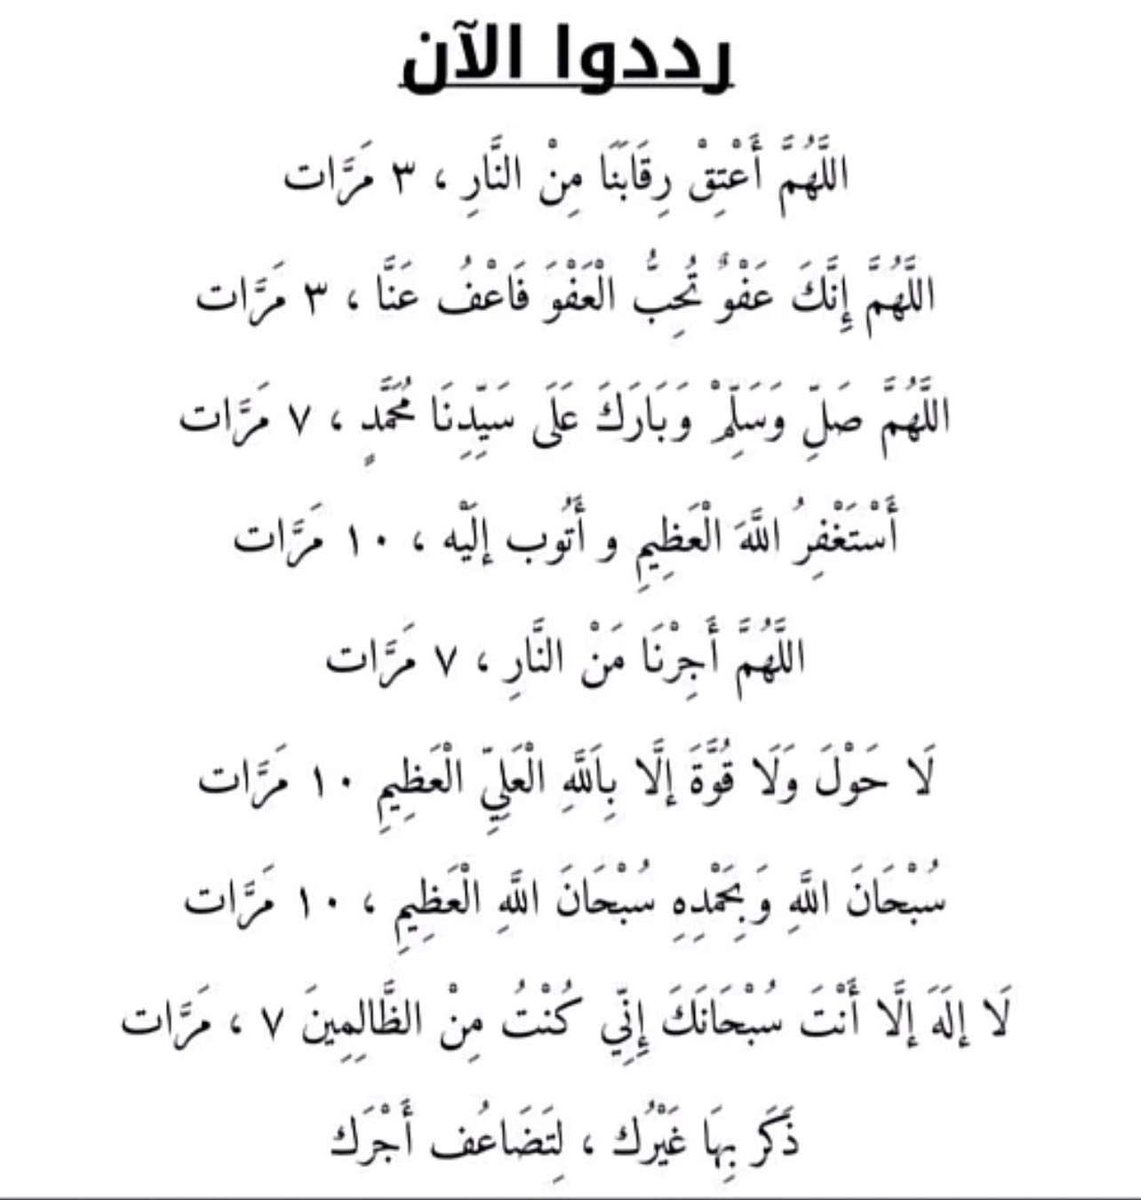 رددوا الآن
اللَّهُمَّ أَعْتِقْ رِقَابَنَا مِنْ النَّارِ ، ٣ مَرَّات
اللَّهُمَّ إِنَّكَ عَفْوٌ تُحِبُّ الْعَفْوَ فَاعْفُ عَنَّا ، ٣ مَرَّات
اللَّهُمَّ صَلِّ وَسَلِّمْ وَبَارَكَ عَلَى سَيِّدِنَا مُحَمَّدٍ ، ٧ مَرَّات
أَسْتَغْفِرُ اللَّهَ الْعَظِيمِ و أَتُوب إلَيْه ، ١٠ مَرَّات
اللَّهُمَّ أَجِرْنَا مَنْ النَّارِ ، ٧ مَرَّات
لَا حَوْلَ وَلَا قُوَّةَ إلَّا بِاَللَّهِ الْعَلِيِّ الْعَظِيمِ ١٠ مَرَّات
سُبْحَانَ اللَّهِ وَبِحَمْدِهِ سُبْحَانَ اللَّهِ الْعَظِيمِ ، ١٠ مَرَّات
لَا إلَهَ إلَّا أَنْتَ سُبْحَانَكَ إِنِّي كُنْتُ مِنْ الظَّالِمِينَ ٧ ، مَرَّات
ذَكَر بِهَا غَيْرُك ، لِتَضَاعُف أَجْرَك